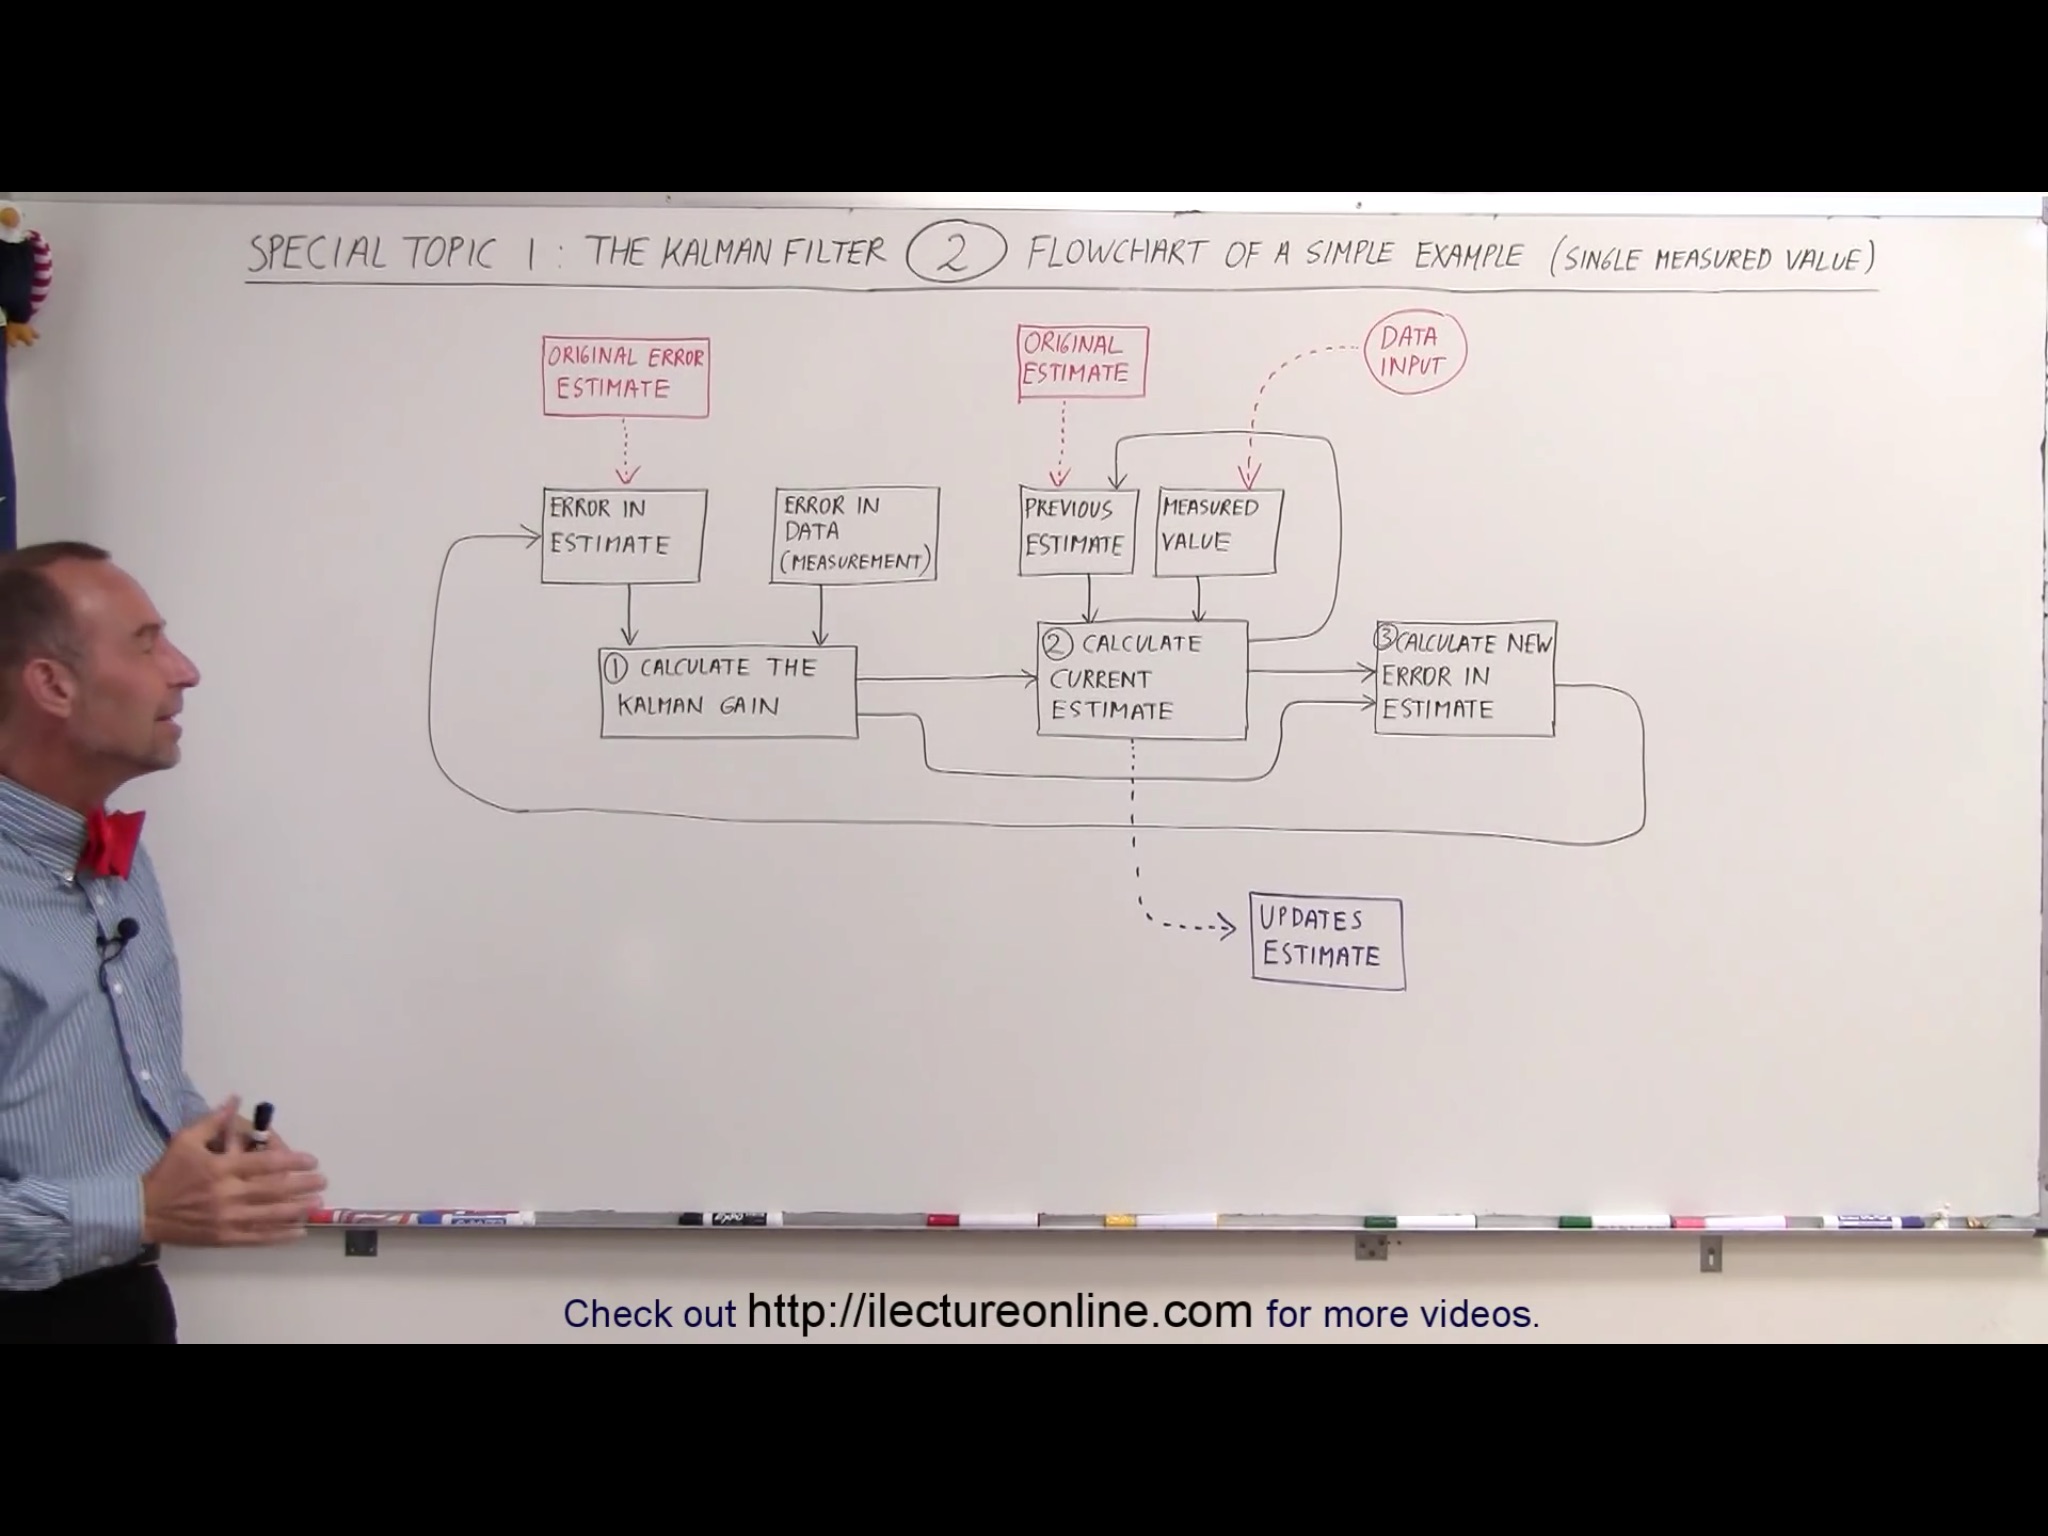 SPECIAL TOPIC 1: THE KALMAN FILTER 2 FLOWCHART OF A SIMPLE EXAMPLE (SINGLE MEASURED VALUE)
ORIGINAL ERROR
ESTIMATE
ORIGINAL
ESTIMATE
DATA
INPUT
ERROR IN
ESTIMATE
ERROR IN
DATA
(MEASUREMENT)
PREVIOUS
ESTIMATE
MEASURED
VALUE
1 CALCULATE THE
KALMAN GAIN
2 CALCULATE
CURRENT
ESTIMATE
3 CALCULATE NEW
ERROR IN
ESTIMATE
UPDATES
ESTIMATE
EXPO
Check out http://ilectureonline.com for more videos.